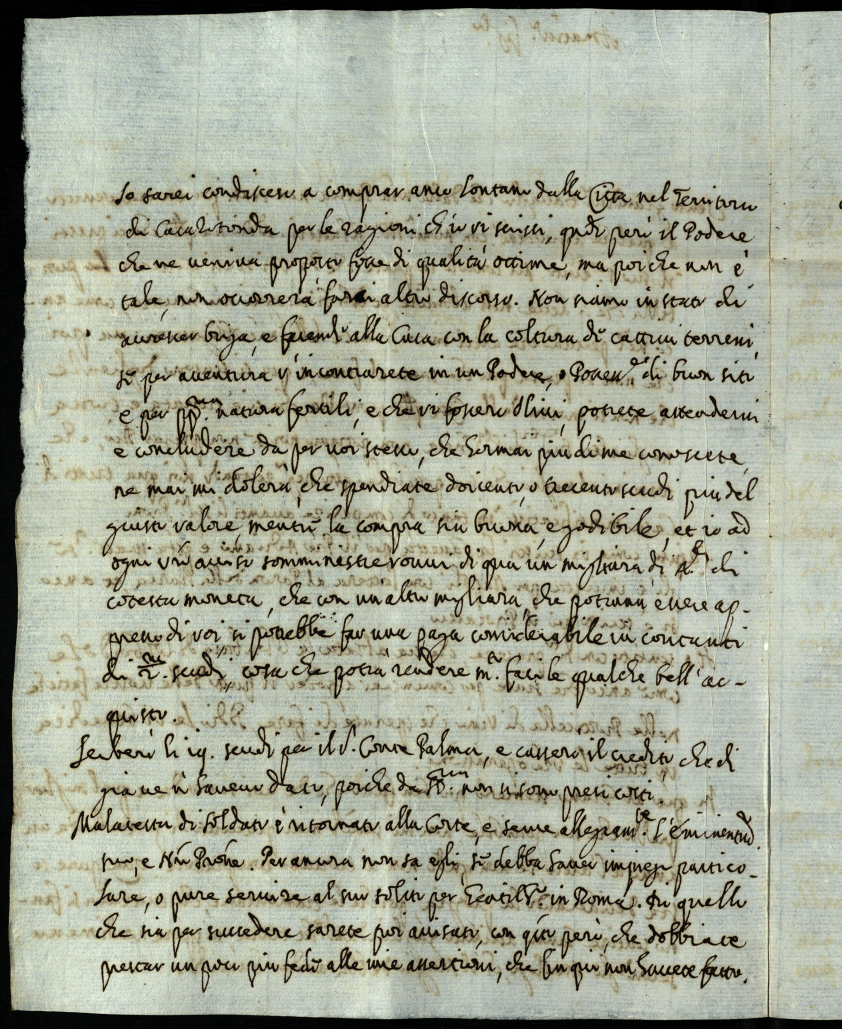 Io sarei condisceso a comprar anco lontano dalla Città nel Territorio
di Casa Rotonda per le ragioni ch'io vi scrissi, qndo però il Podere
che ne veniva proposto fosse di qualità ottime, ma poi che non è
tale, non occorrerà farci altro discorso. Non siamo in stato di
accrescer briga, e faccende alla Casa con la coltura de cattivi terreni,
se per aventura v'incontrarete in un Podere, o di buon sito
e per natura fertili, e che vi fossero Olivi, potrete attendervi
e concludere da per voi stesso, che hormai più di me conoscete,
ne mai mi dolerà, che spendiate docento, o trecento scudi più del
giusto valore mentre la compra sia buona, e godibile, et io ad
ogni vro aviso somministrerovvi di qua un migliara di di
cotesta moneta, che con un'altro migliara, che potranno essere ap-
presso di voi, si potrebbe far una paga considerabile in contanti
di scudi, cosa che potrà rendere facile qualche bell'ac-
quisto.
Serberò li 19. scudi per il Sr. Conte Palma, e casserò il credito che di
già ve n'haveva dato, poiche da non si sono presi costì.
Malatesta di soldato è ritornato alla Corte, e serve L'Eminentmo
suo, e Nro Prone. Per ancora non sa egli se debba haver impiego partico-
lare, o pure servire al suo solito per in Roma. Di quello
che sia per succedere sarete poi avisato, con qsto però, che dobbiate
prestar un poco più fede alle mie assertioni, che fin qui non havete fatto.